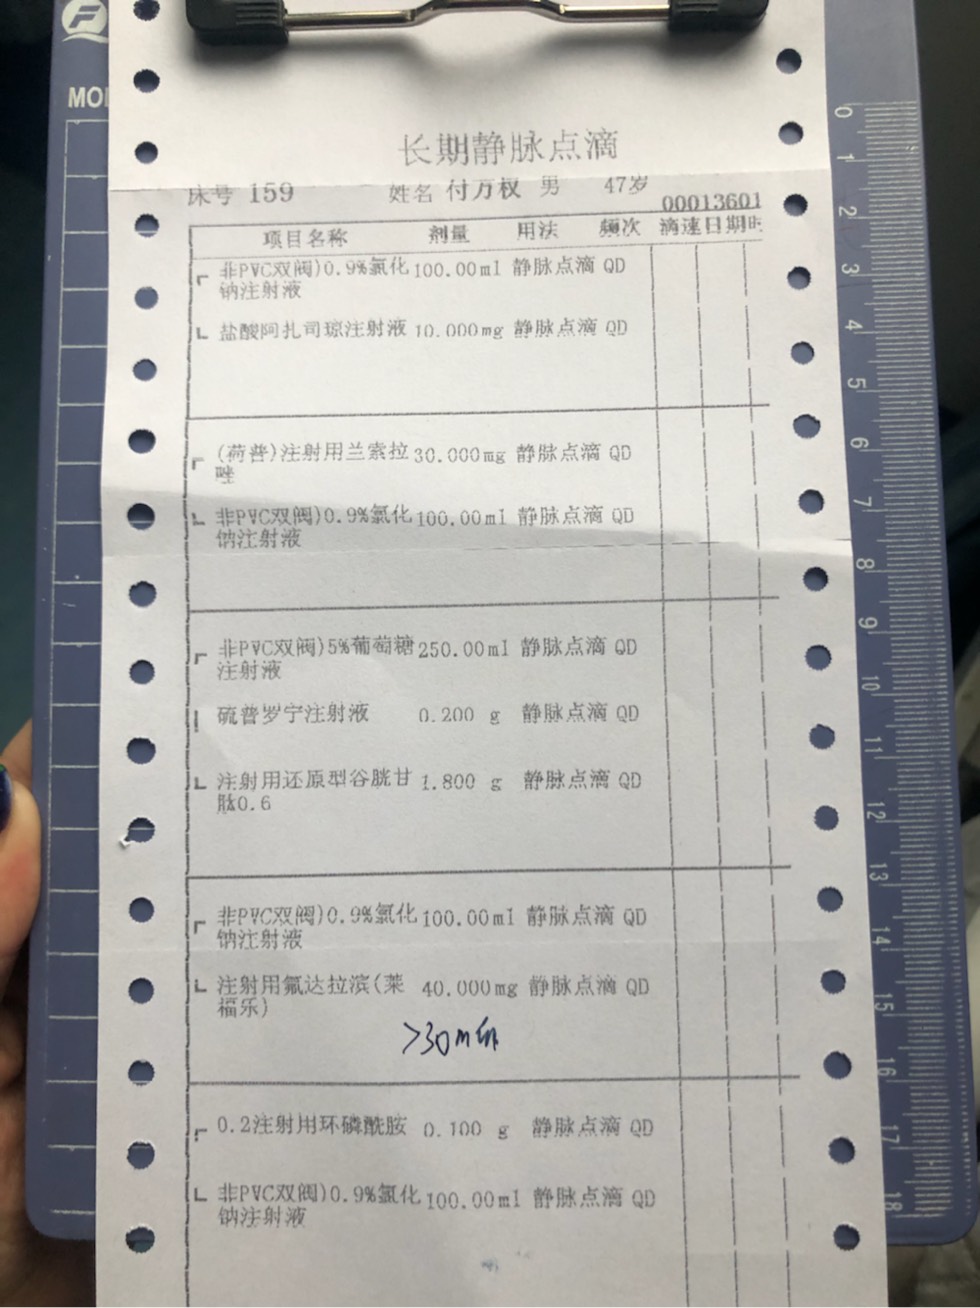 MO
长期静脉点滴
床号 159 姓名 付万权 男 47岁
00013601
项目名称 剂量 用法 频次 滴速 日期 时
非PVC双阀)0.9%氯化 100.00ml 静脉点滴 QD
钠注射液
盐酸阿扎司琼注射液 10.000mg 静脉点滴 QD
(荷普)注射用兰索拉 30.000mg 静脉点滴 QD
唑
非PVC双阀)0.9%氯化 100.00ml 静脉点滴 QD
钠注射液
非PVC双阀)5%葡萄糖 250.00ml 静脉点滴 QD
注射液
硫普罗宁注射液 0.200 g 静脉点滴 QD
注射用还原型谷胱甘 1.800 g 静脉点滴 QD
肽0.6
非PVC双阀)0.9%氯化 100.00ml 静脉点滴 QD
钠注射液
注射用氟达拉滨(莱 40.000mg 静脉点滴 QD
福乐)
>30min
0.2注射用环磷酰胺 0.100 g 静脉点滴 QD
非PVC双阀)0.9%氯化 100.00ml 静脉点滴 QD
钠注射液
0
1
2
3
4
5
6
7
8
9
10
11
12
13
14
15
16
17
18